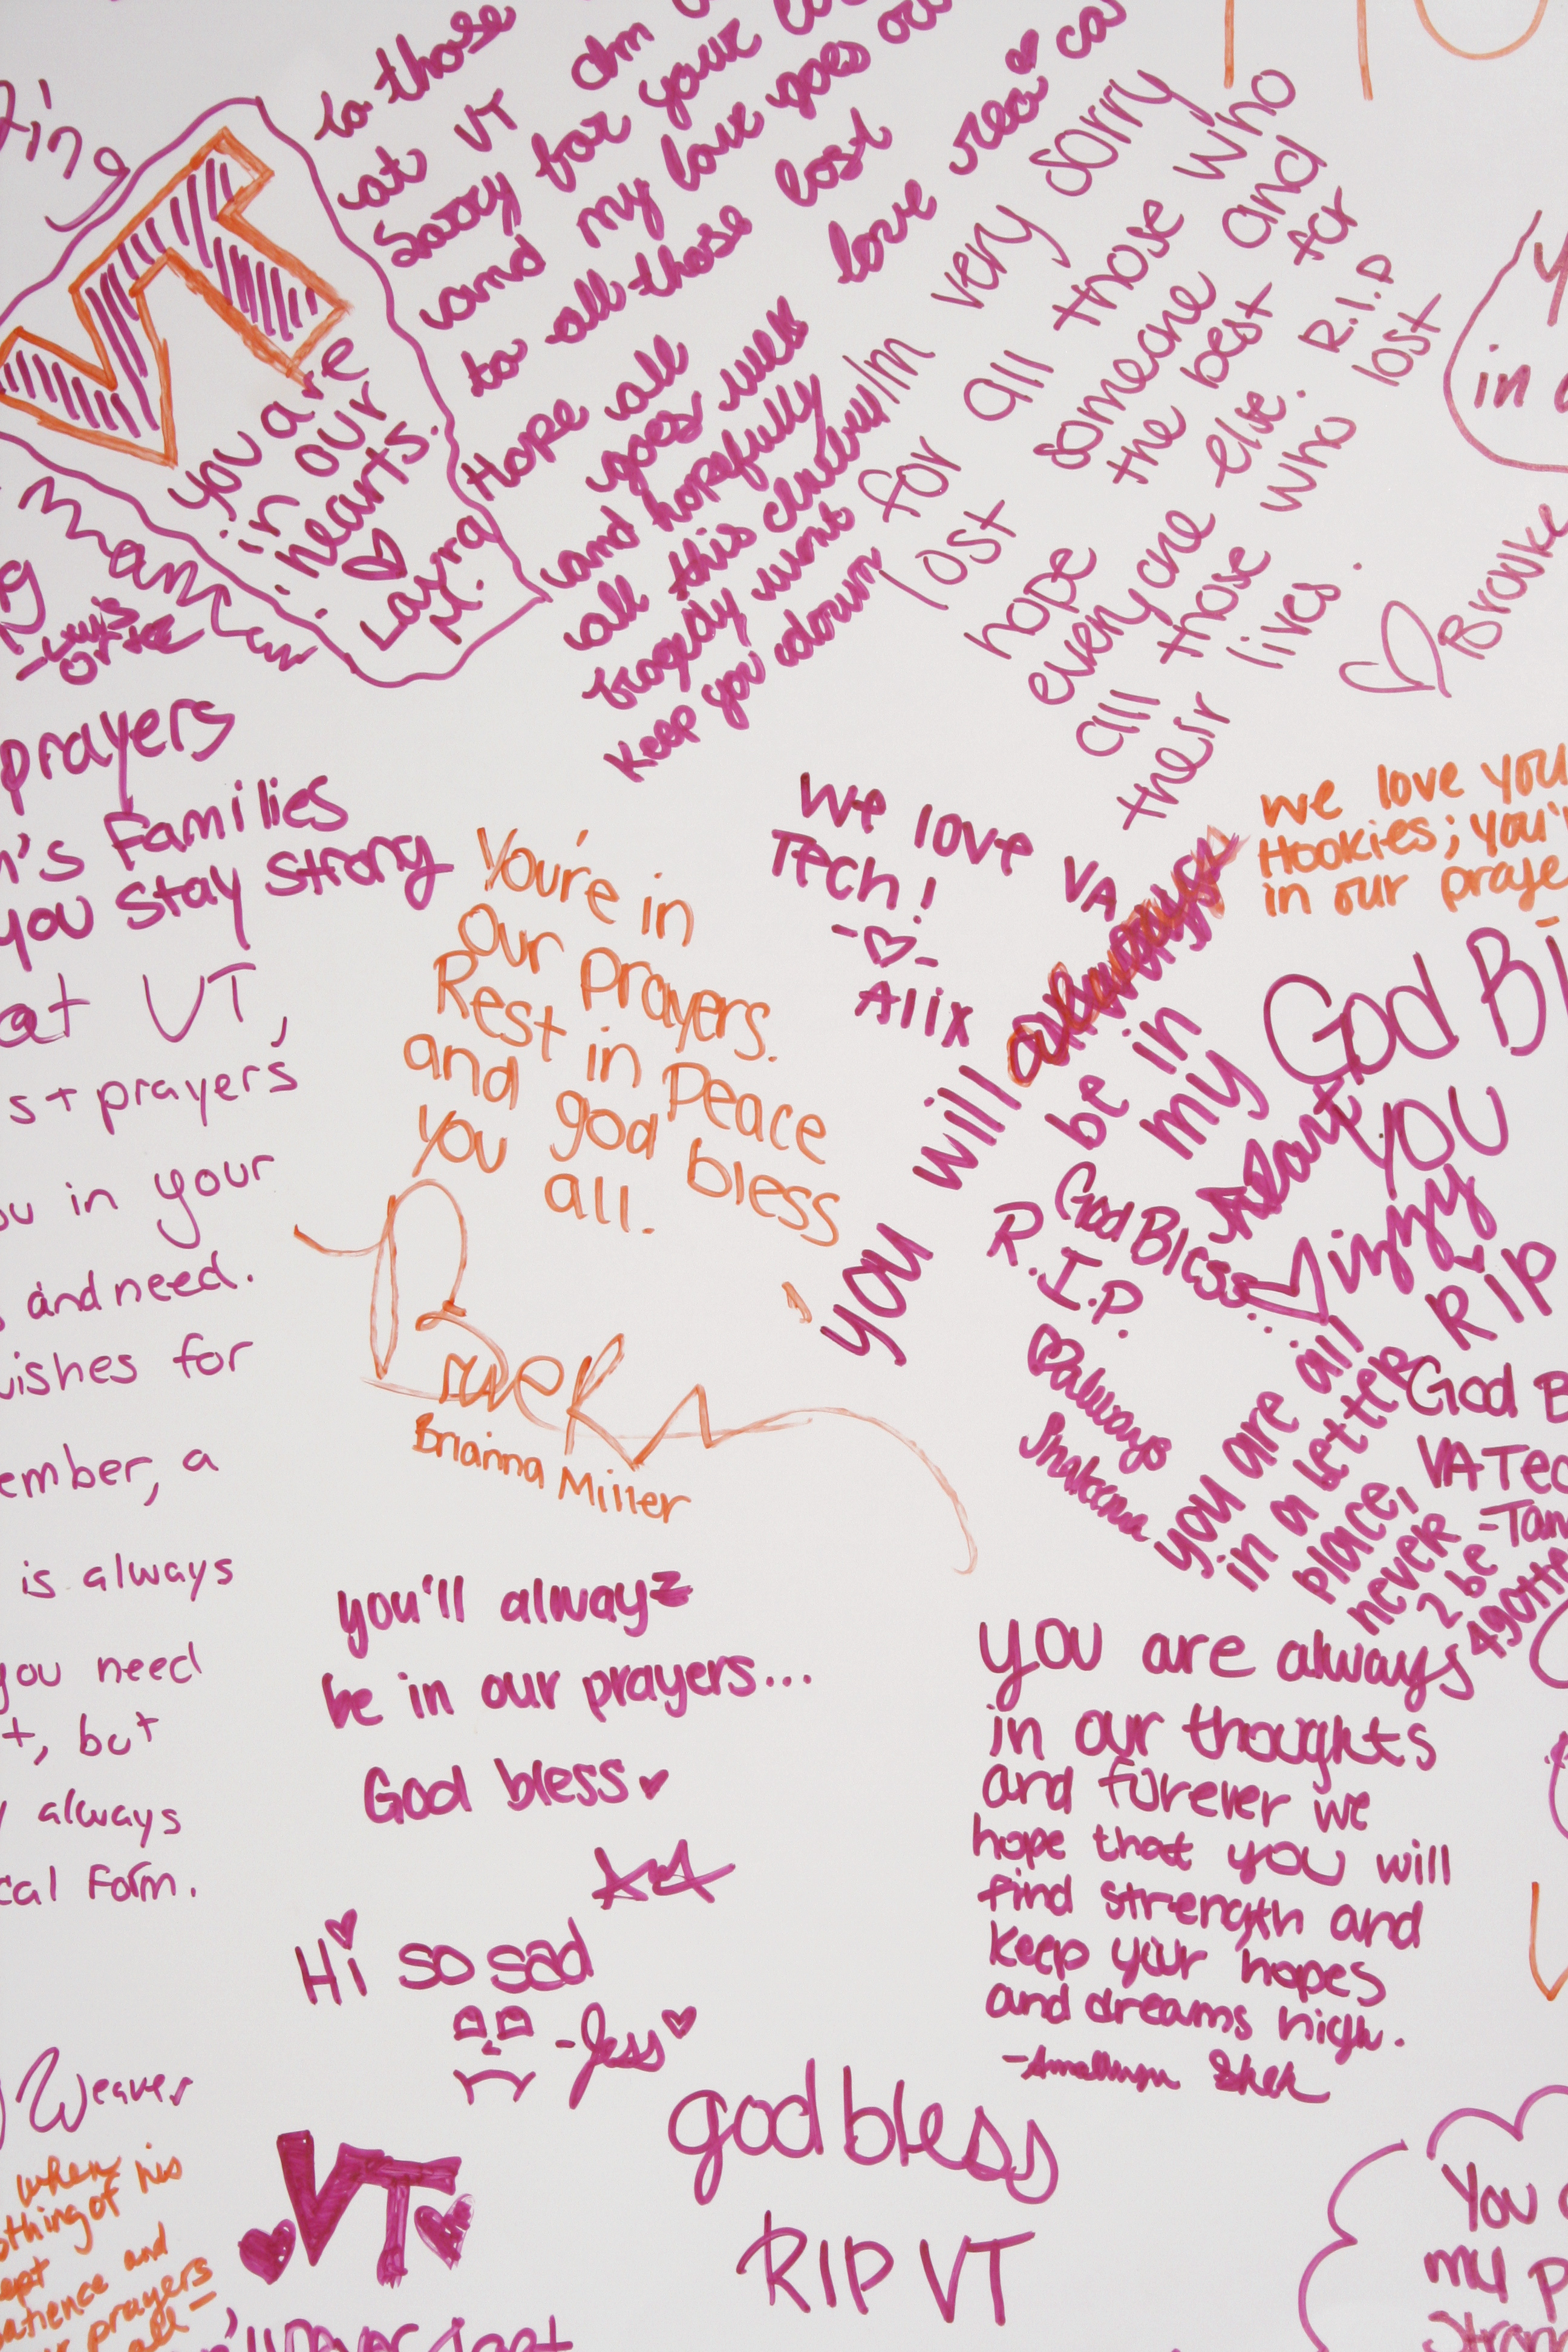 VT
you are
in our
hearts.
Laura
M.
to those
at VT
sorry for your
and my love goes out
to all those lost
love
Hope all
goes well
and hopefully
all this
tragedy wont
keep you down
I'm very sorry
for all those who
lost someone and
hope the best for
everyone else. R.I.P
all those who lost
their lives.
Brooke
in
man
Luis
prayers
n's Families
you stay strong
at VT,
s + prayers
ou in your
and need.
ishes for
ember, a
is always
you need
t, but
always
cal Form.
Weaver
when
othing of his
ept
atience and
prayers
all-
You're in
Our Prayers.
Rest in Peace
and god bless
you all.
Brianna Miller
We love VA
Tech!
-♡-
Alix
we love you
Hookies; you'
in our praye
you will always
be in
my
heart
God Bl
you
Mizzy
God Bless...
R.I.P.
always
RIP
you are all
in a better
place,
never
2 be
4gotte
God B
VA Tec
-Tam
you'll alwayz
be in our prayers...
God bless♥
Hi so sad
-Jess♥
you are always
in our thoughts
and forever we
hope that you will
find strength and
keep your hopes
and dreams high.
VT
god bless
RIP VT
You
my p